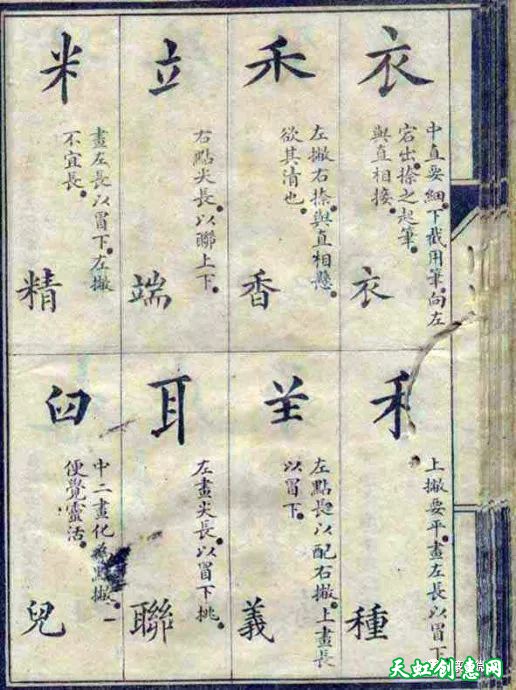 衣
中直要細。下截用筆。向左
宕出。捺之起筆。
與直相接。
衣
禾
左撇右捺。與直相懸。
欲其清也。
香
立
右點尖長。以聯上下。
端
米
畫左長。以冒下。左撇
不宜長。
精
禾
上撇要平。畫左長以冒下
種
𦍌
左點長以配右撇。上畫長
以冒下。
義
耳
左畫尖長。以冒下挑。
聯
臼
中二畫化為點撇。一
便覺靈活。
兒
天虹创意网